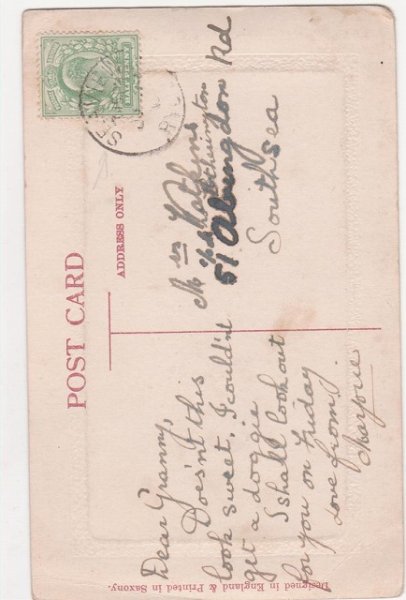 POST CARD
ADDRESS ONLY
Dear Granny,
Doesn't this
look sweet. I couldn't
get a doggie
I shall look out
for you on Friday
love from
Marjorie
Mrs Watkins
51 Abingdon Rd
Southsea
HALFPENNY
Designed in England & Printed in Saxony.